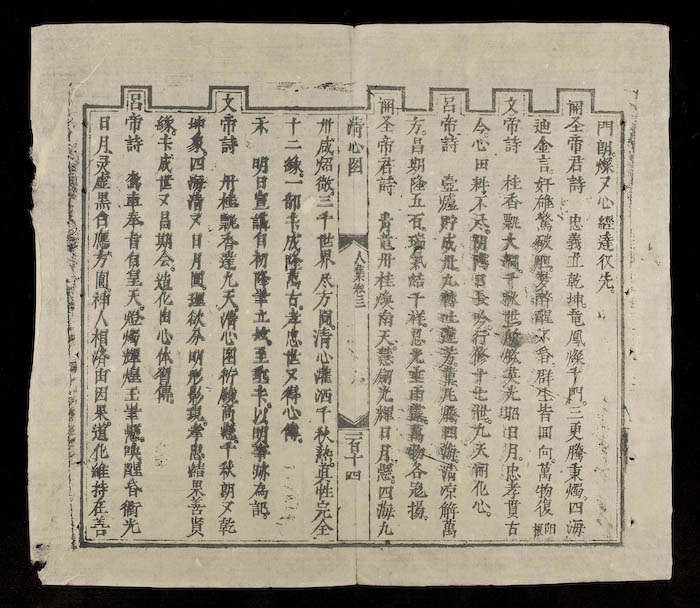 門朗燦又心經達役先。
關聖帝君詩 忠義立乾坤。竜鳳燦千門。三更騰秉燭四海
迪金言。奸雄驚破胆夢醉醒不昏群生皆回向。萬物復陽根
文帝詩 桂香飄大洞千秋世所欽英光昭日月。忠孝貫古
今心田耕不尽。陰隲日長吟行修十七世。九天開化心。
呂帝詩 壺爐貯成丹九轉吐蓮芳葉九騰四海清凉解萬
方。昌期隆五石。瑞氣結千祥。恩光垂雨露。萬物各揚。
關聖帝君詩 青龍丹桂煥南天慧劍光輝日月懸。四海九
清心图 人集卷三 一百十四
卅成炤徹。三千世界尽方圓。清心灌洒千秋熱。真性完全
十二緣。一部卡成隆萬古。孝忠世又得心傳。
禾 明日宣講自初降筆立至卡。以明筆跡為記。
文帝詩 丹桂飄香達九天清心图術願高懸千秋朗又乾
坤象四海清又日月圓。理欲分明形影現。孝忠結果善賢
緣。卡成世又昌期会。造化由心休習傳。
呂帝詩 鸞車奉旨自皇天。燈燭輝煌玉筆懸。喚醒昏衢光
日月。灵虛黑白應方圓。神人相濟由因果。道化維持在善